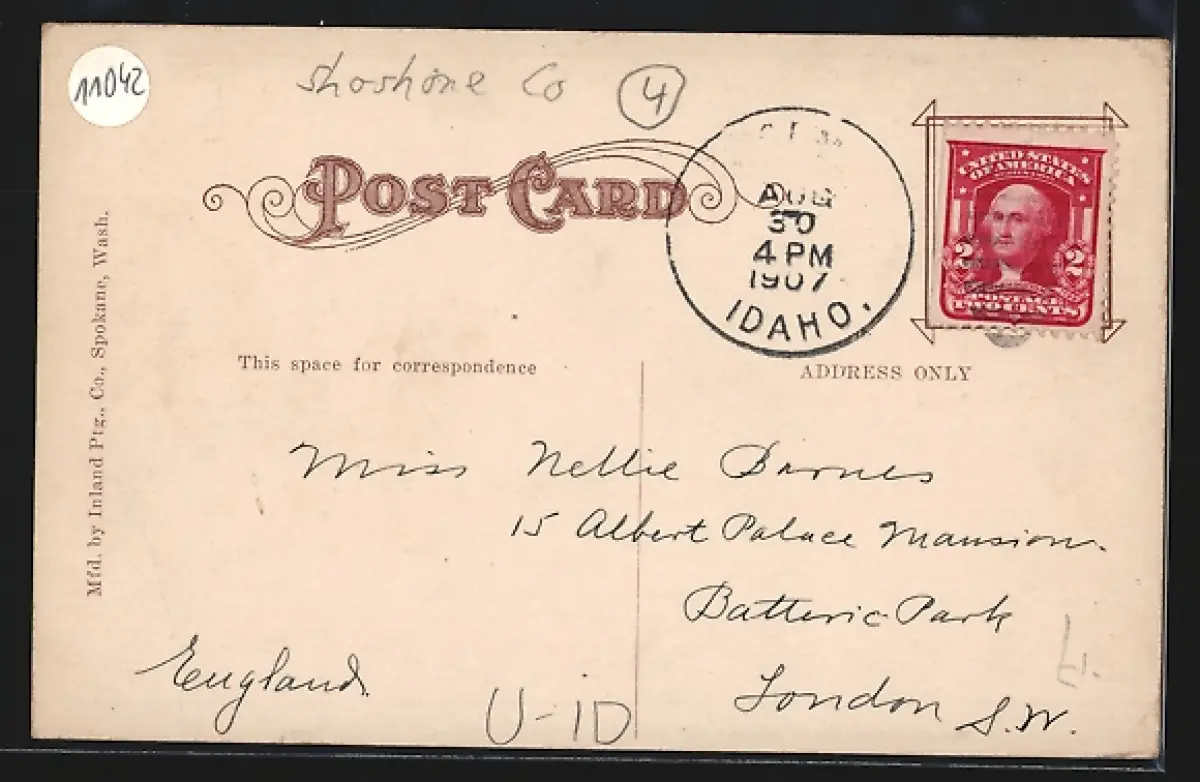 11042
Shoshone Co 4
POST CARD
AUG
30
4 PM
1907
IDAHO.
UNITED STATES
OF AMERICA
2 2
POSTAGE
TWO CENTS
Mfd. by Inland Ptg., Co., Spokane, Wash.
This space for correspondence
ADDRESS ONLY
Miss Nellie Barnes
15 Albert Palace Mansion
Batteric Park
London S.W.
England.
U-ID